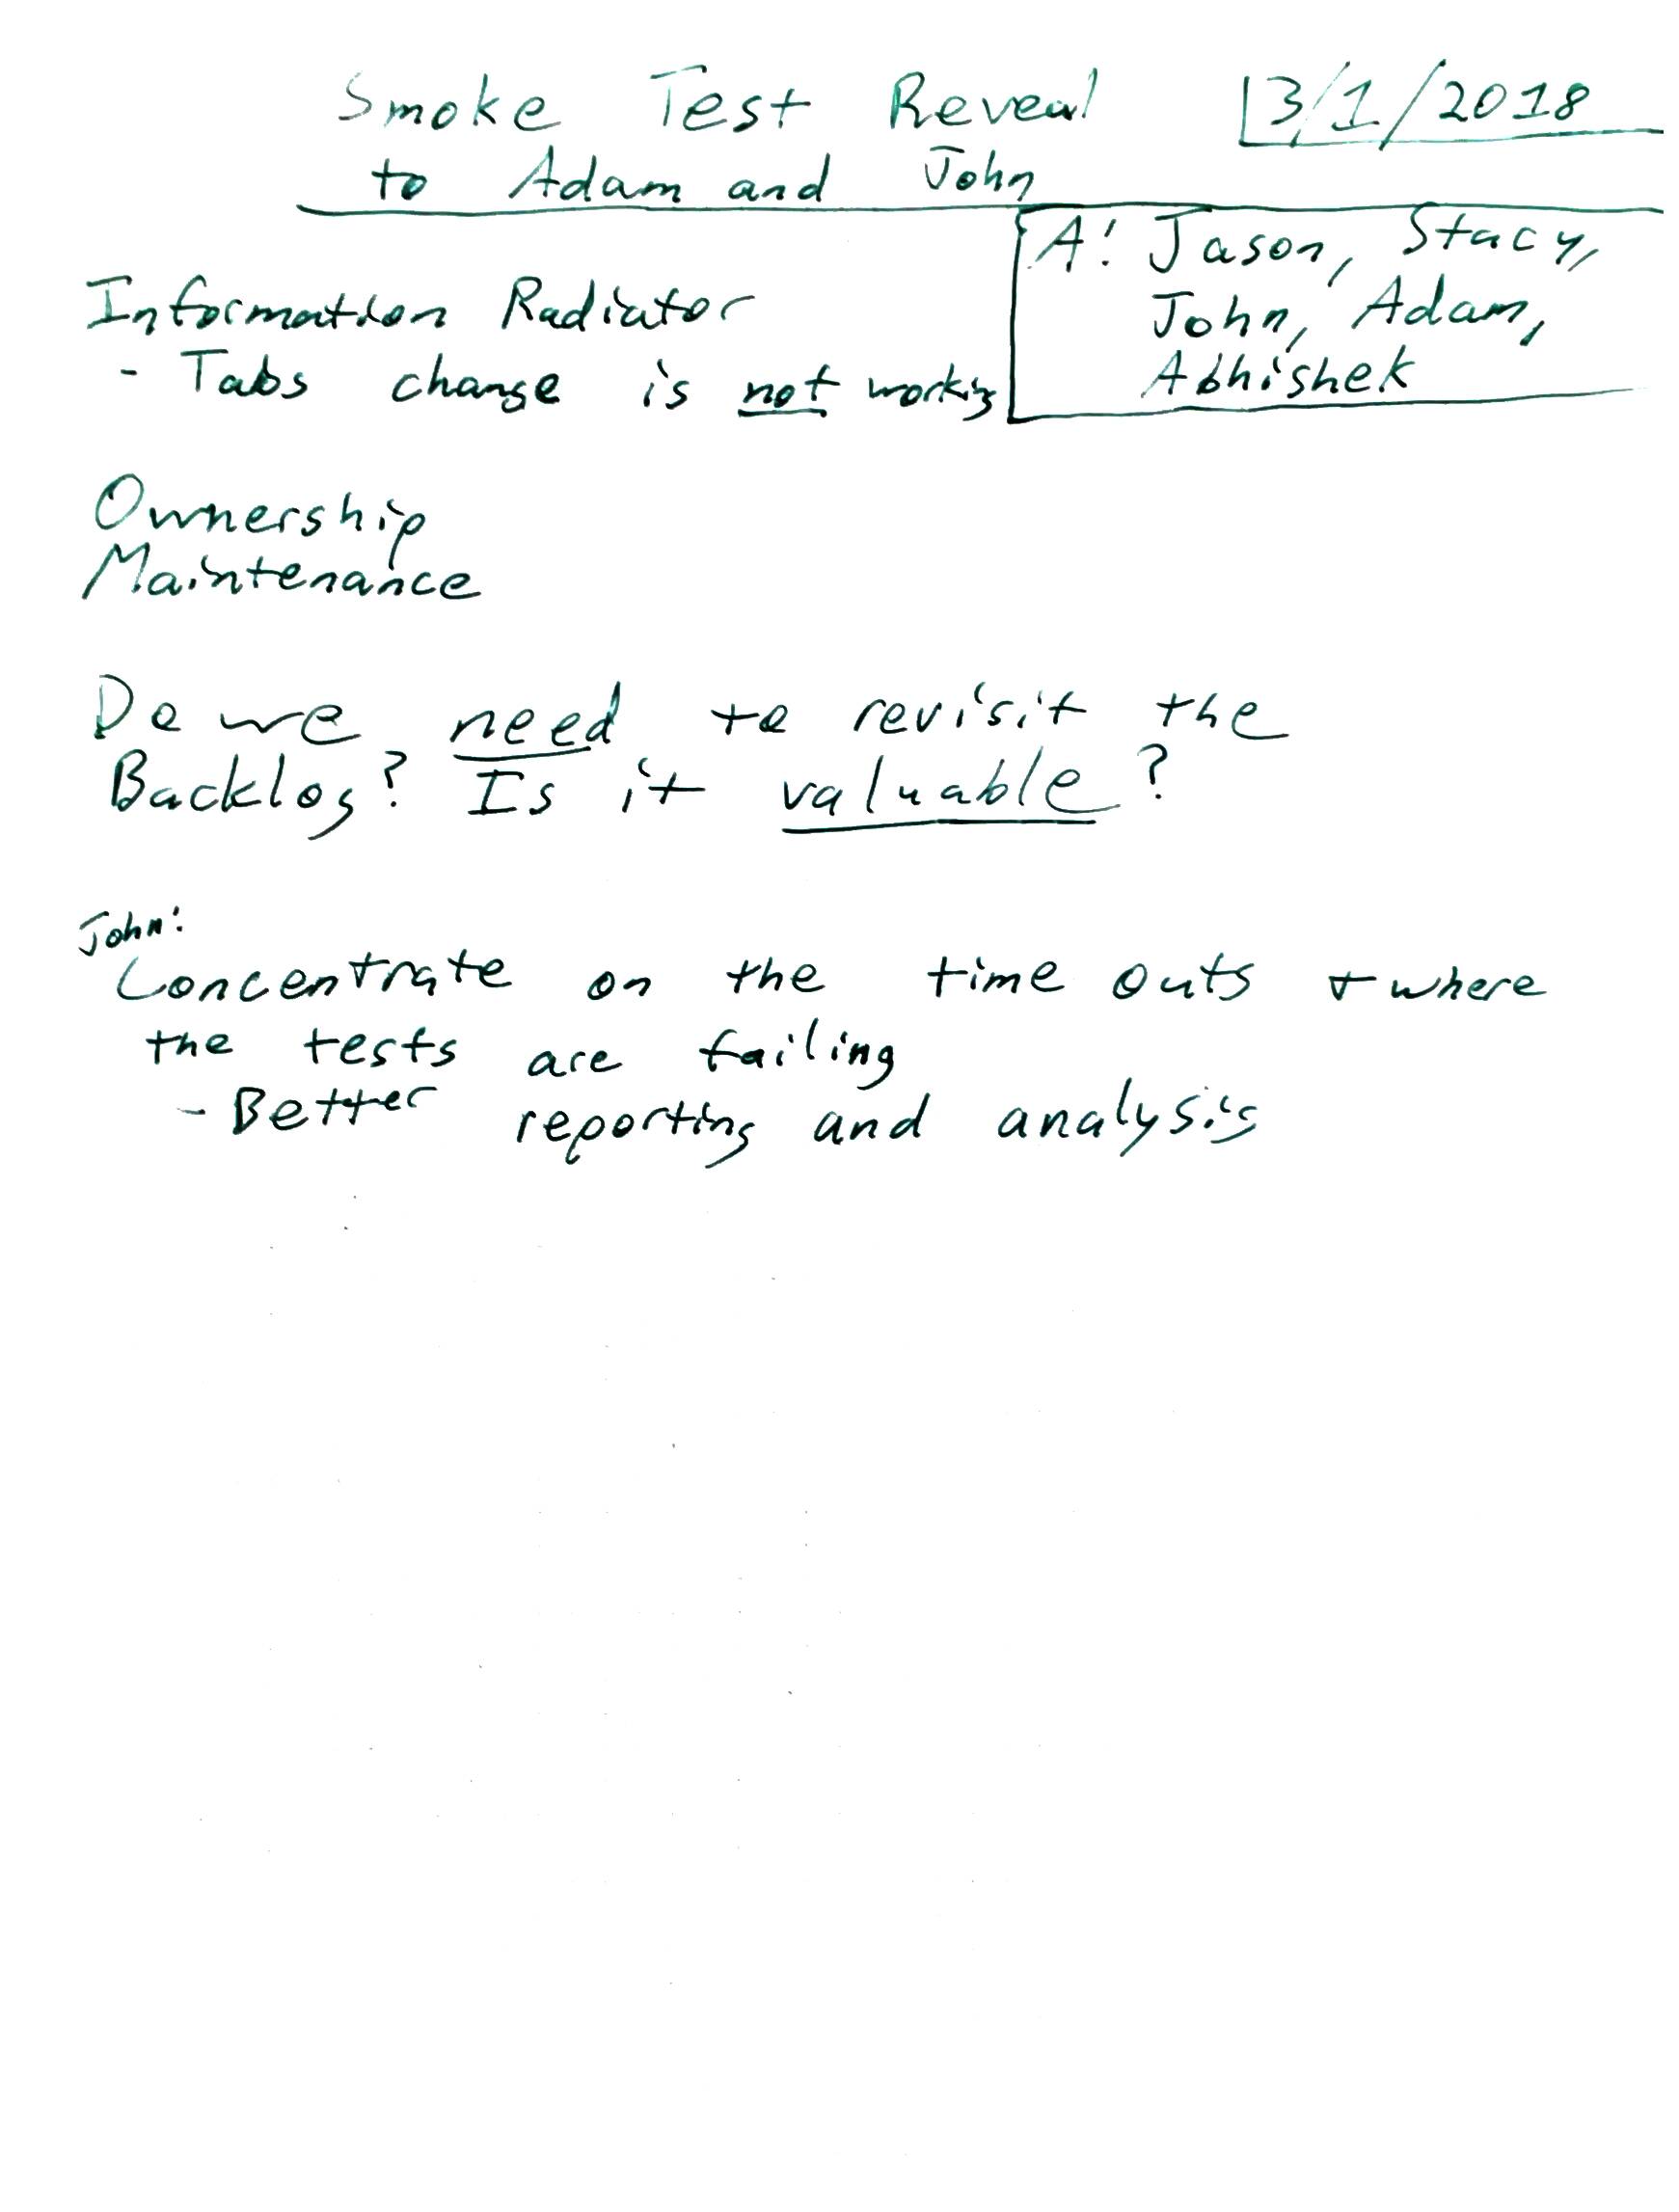 Smoke Test Reveal
to Adam and John
3/1/2018
A: Jason, Stacy,
John, Adam,
Abhishek
Information Radiator
- Tabs change is not working
Ownership
Maintenance
Do we need to revisit the
Backlog? Is it valuable?
John:
Concentrate on the time outs + where
the tests are failing
- Better reporting and analysis